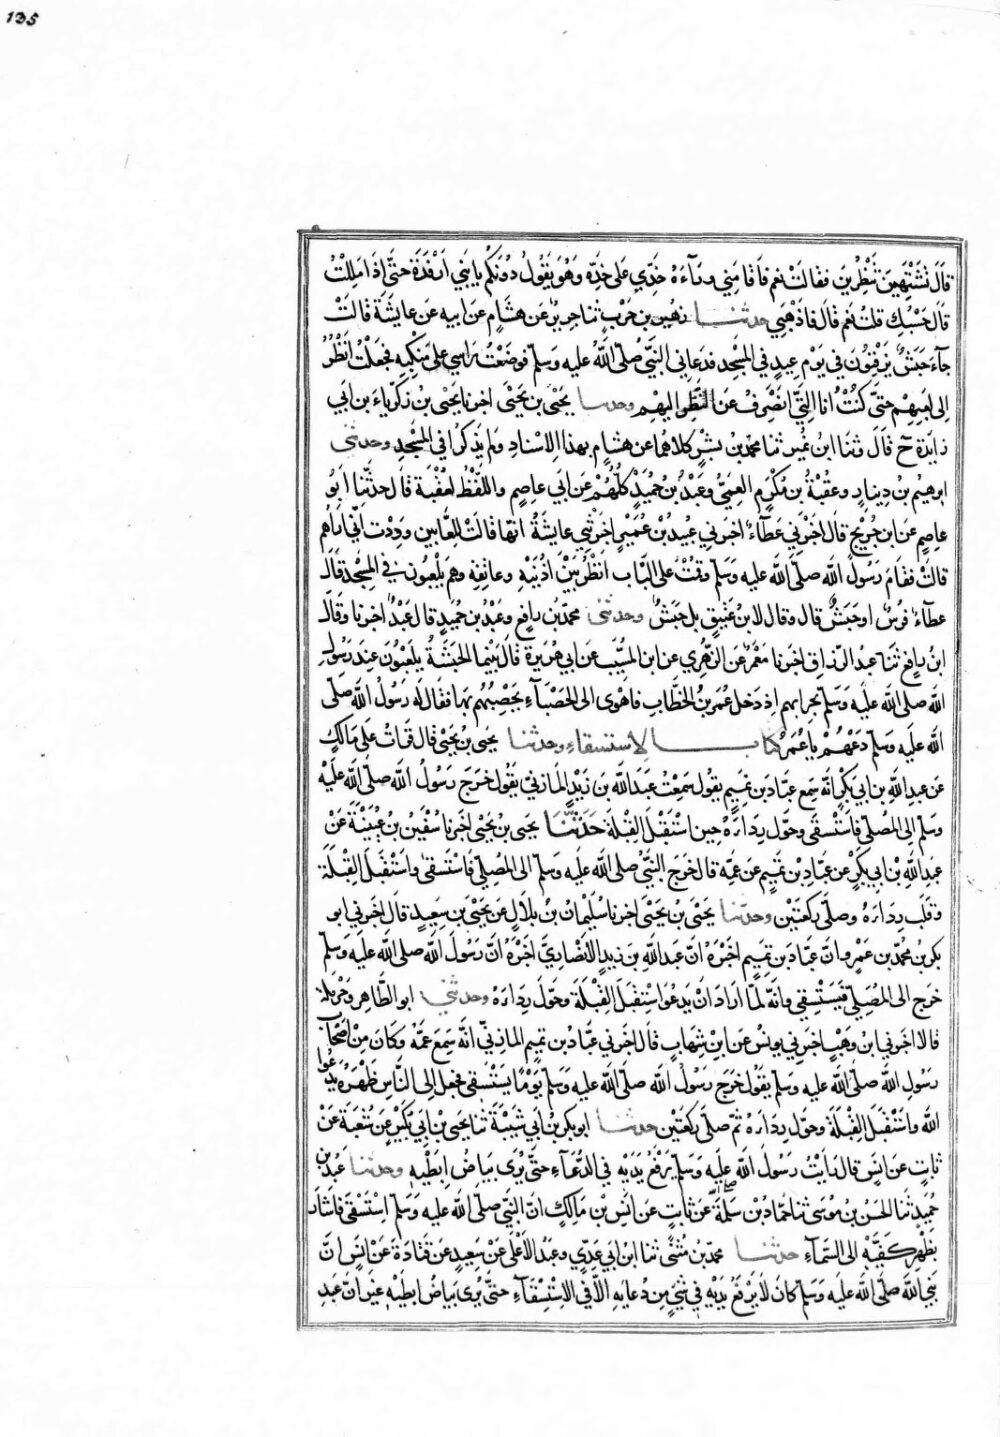 135
قَالَ تَشْتَهِينَ تَنْظُرِينَ فَقَالَتْ نعم فَاَقَامَنِي وَرَآءَهُ خَدِّي عَلَى خَدِّهِ وَهُوَ يَقُولُ دُونَكُمْ يا بَنِي اَرْفَدَةَ حتَّى إذَا مَلِلْتُ
قَالَ حَسْبُكِ قلتُ نعم قَالَ فَاذْهَبِي حدثنا زهير بن حرب ثنا جرير عَن هشام عَن ابيه عَن عايشة قالت
جآءَ حَبَشٌ يَزْفِنُونَ فِي يَوْمِ عِيدٍ فِي المَسْجِد فدعاني النَّبِيّ صلّى اللّٰه عليه وسلم فوضعتُ رَاسِي عَلَى مَنْكِبِه فجعلتُ أَنْظُرُ
إلى لعبهم حَتّى كُنْتُ انا الَّتِي اَنْصَرِفُ عَنِ النَّظَرِ اليهم وحدثنا يحيى بن يحيى اخبرنا يحيى بن زكريّاءَ بن ابي
زايدة ح قَالَ وثنا ابن نمير ثنا محمد بن بشر كلاهما عن هشام بهذا الاسناد ولم يذكرا في المسجد وحدثني
ابرهيم بن دينار وعقبة بن مُكْرَم العَمِّيّ وعَبْدُ بن حُمَيْدٍ كلّهم عَن أبي عاصم واللفظ لعقبة قَالَ حدثنا ابو
عاصم عَن ابن جُرَيْج قال اخبرني عطآءٌ اخبرني عبيد بن عُمَيْرٍ اخبرتني عايشةُ انها قالت للعّابين وددت انّي اراهم
قالت فقام رَسُولُ اللّٰه صلى اللّٰه عليه وسلم وقمتُ على الباب انظر بين اُذُنَيْهِ وعاتقه وهم يلعبون في المسجد قَالَ
عطآءٌ فُرْسٌ او حَبَشٌ قال وقال لي ابن عتيق بل حبشٌ وحدثني محمد بن رافع وعَبْدُ بن حُمَيْدٍ قال عَبْدٌ اخبرنا وقال
ابنُ رافع ثنا عبد الرزاق اخبرنا معمر عَن الزُّهري عن ابن المسيّب عن ابي هريرة قالَ بَيْنَمَا الحَبَشَةُ يلعبونَ عند رَسُولِ
اللّٰه صلى اللّٰه عليه وَسَلّم بحرابهم اِذ دَخل عُمَر بنُ الخَطّاب فاهوى الى الحَصْبَآءِ يَحْصِبُهُم بها فقَال له رَسُولُ اللّٰه صلى
اللّٰه عليه وَسلم دَعْهُمْ يا عُمَرُ كتاب الاستسقاء وحدثنا يحيى بن يحيى قال قرات على مَالِكٍ
عَن عبد اللّٰه بن ابي بَكْرٍ انّه سَمِع عبّاد بن تميم يقول سَمِعْتُ عَبْدَ اللّٰه بن زَيْدٍ المازني يقول خَرَجَ رَسُولُ اللّٰه صلى اللّٰه عليه
وسلم إلى المُصَلَّى فاسْتَسْقَى وحَوَّل رِدَاءَهُ حِين اسْتَقْبَلَ القِبْلَةَ حَدَّثَنَا يحيى بن يحيى اخبرنا سُفْين بن عُيَيْنَةَ عَنْ
عَبد اللّٰه بن ابي بَكْرٍ عَن عبّاد بن تميم عَن عمّه قال خَرَجَ النَّبيُّ صلى اللّٰه عليه وَسلم الى المُصَلَّى فاستَسْقَى واسْتَقْبَلَ القِبْلَة
وَقَلَب رِدَاءَهُ وصَلّى رَكعَتَيْن وحدثنا يَحْيَى بن يَحْيَى اخبرنا سُلَيْمَانُ بن بلالٍ عَن يَحْيَى بن سَعِيدٍ قال اخبرني ابو
بكر بنُ محمّد بن عَمْرٍو انّ عبّاد بن تميم اخبَرَهُ انّ عبد اللّٰه بن زيد الانصَاريَّ اخبَرَهُ انّ رَسُولَ اللّٰه صلى اللّٰه عليه وَسَلم
خَرَج الى المُصَلَّى يَسْتَسْقِي وانَّه لَمّا اَرَادَ اَنْ يدعوَ استقبَلَ القِبْلَةَ وحَوّلَ رِدَاءَهُ وحدثني ابو الطّاهر وحَرْملة
قالا اخبرنا ابن وَهْبٍ اخبَرني يونسُ عَن ابن شِهابٍ قالَ اخبَرني عبّاد بن تميم المازنيّ انَّه سَمِعَ عمَّه وكان مِنْ اصْحَابِ
رَسُولِ اللّٰه صلى اللّٰه عليه وَسلم يَقُولُ خَرَجَ رَسُولُ اللّٰه صلى اللّٰه عليه وَسلم يَوْمًا يَسْتَسْقِي فجعل الى النَّاسِ ظَهْرَهُ يدعُو
اللّٰه واسْتَقْبَلَ القِبْلَةَ وحَوّل رِدَاءَهُ ثم صلّى رَكعَتَيْن حدثنا ابو بكر بن ابي شَيْبَةَ ثنا يحيى بن ابي بُكَيْرٍ عَن شُعْبَةَ عَنْ
ثَابِتٍ عَن انسٍ قال رَاَيْتُ رَسُولَ اللّٰه عليه وسلم يَرْفَعُ يَدَيْهِ في الدُّعَآءِ حتّى يُرَى بَيَاضُ اِبِطَيْهِ وحدثنا عَبْد بن
حُمَيدٍ ثنا الحَسَنُ بن مُوسَى ثنا حَمّاد بْن سَلَمَةَ عَن ثابتٍ عَن انسِ بن مَالِكٍ انّ النَّبيّ صلى اللّٰه عليه وَسَلم اسْتَسْقَى فَاشَارَ
بظَهْرِ كَفَّيْه الى السَّمآءِ حدثنا محمّد بن مُثَنَّى ثنا ابن ابي عَدِيّ وعَبْدُ الاَعْلَى عَنْ سَعِيدٍ عَن قَتَادَةَ عَنْ انسٍ انّ
نَبِيّ اللّٰه صلّى اللّٰه عليه وَسلم كان لاَ يَرْفَعُ يَدَيْهِ فِي شَيْءٍ مِن دُعَايه الاّ في الاستِسْقآء حتّى يُرى بَيَاضُ اِبطَيْهِ غيرَ انّ عَبْد